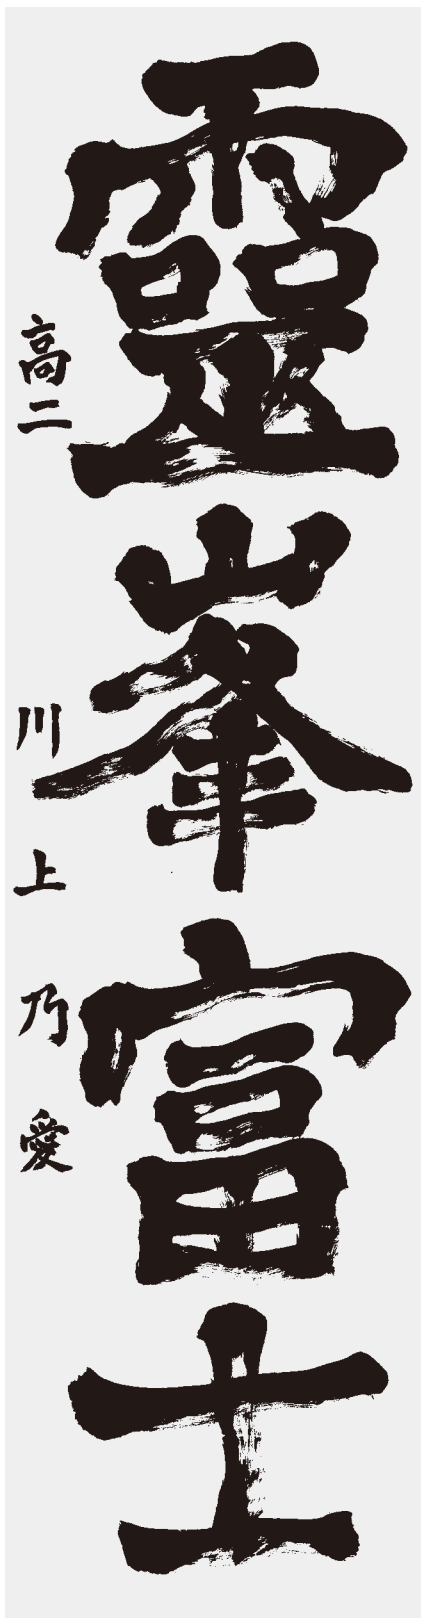 靈峯富士
高二 川上乃愛